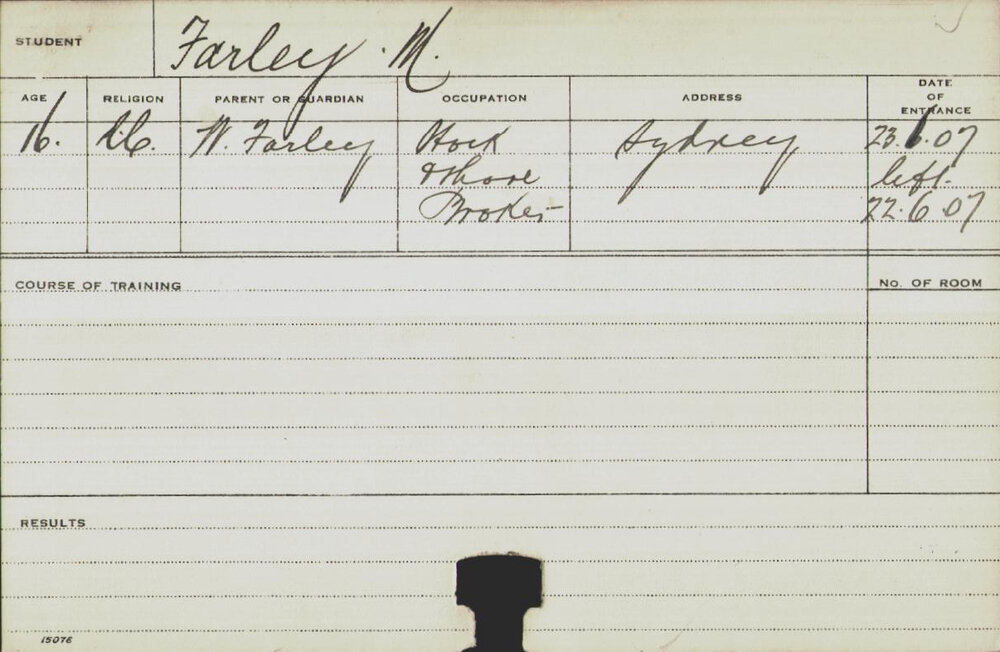 STUDENT Farley. M.
AGE RELIGION PARENT OR GUARDIAN OCCUPATION ADDRESS DATE OF ENTRANCE
16. W. Farley Stock Sydney 23. .07
& Share left
Broker 22.6.07
COURSE OF TRAINING No. OF ROOM
RESULTS
15076